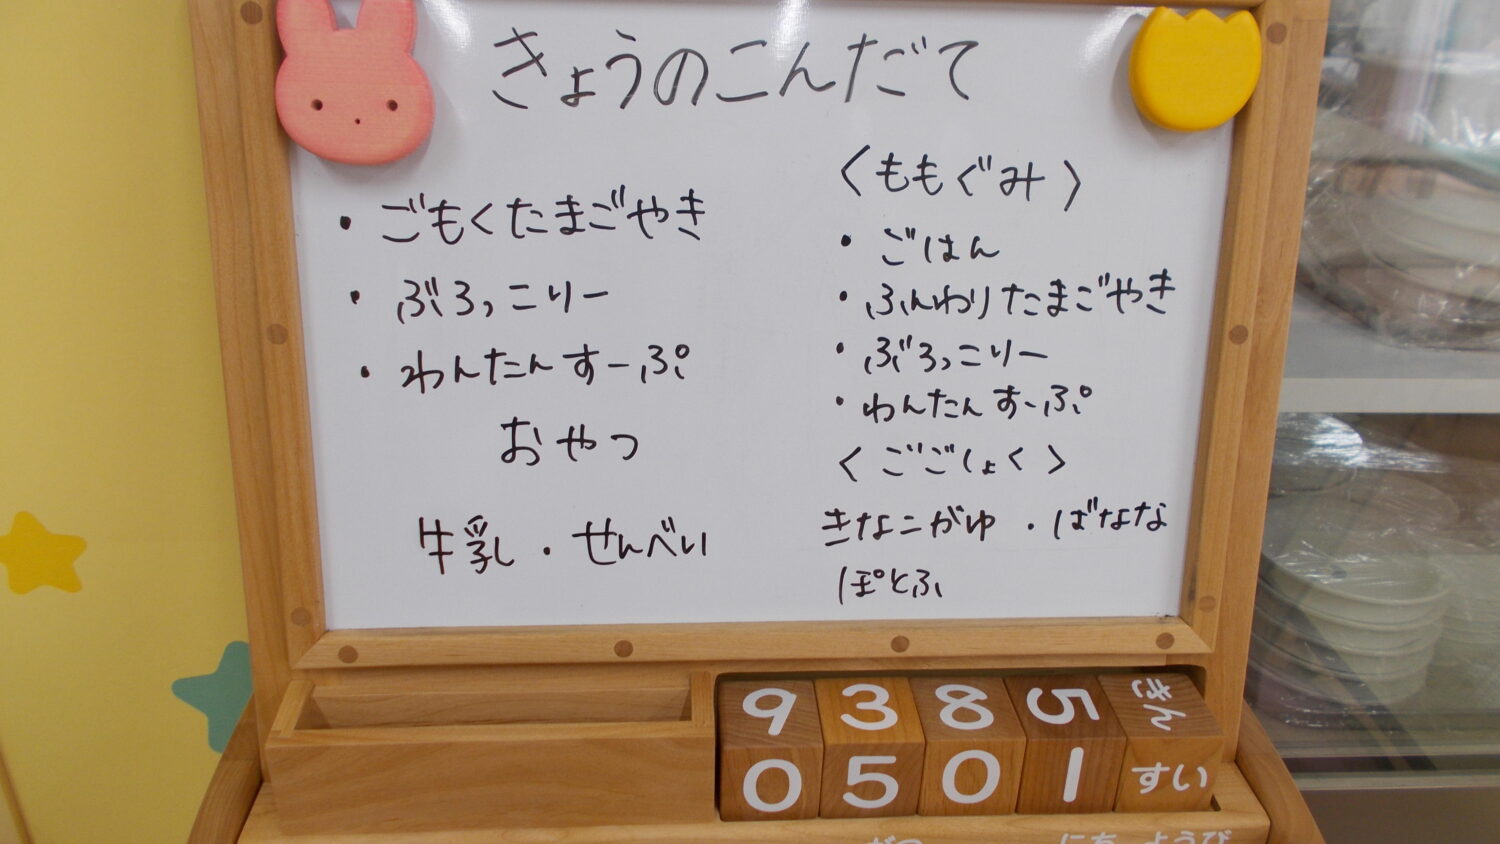 きょうのこんだて
・ごもくたまごやき
・ぶろっこりー
・わんたんすーぷ
おやつ
牛乳・せんべい
〈ももぐみ〉
・ごはん
・ふんわりたまごやき
・ぶろっこりー
・わんたんすーぷ
〈ごごしょく〉
きなこがゆ・ばなな
ぽとふ
9 3 8 5 きん
0 5 0 1 すい
がつ にち ようび